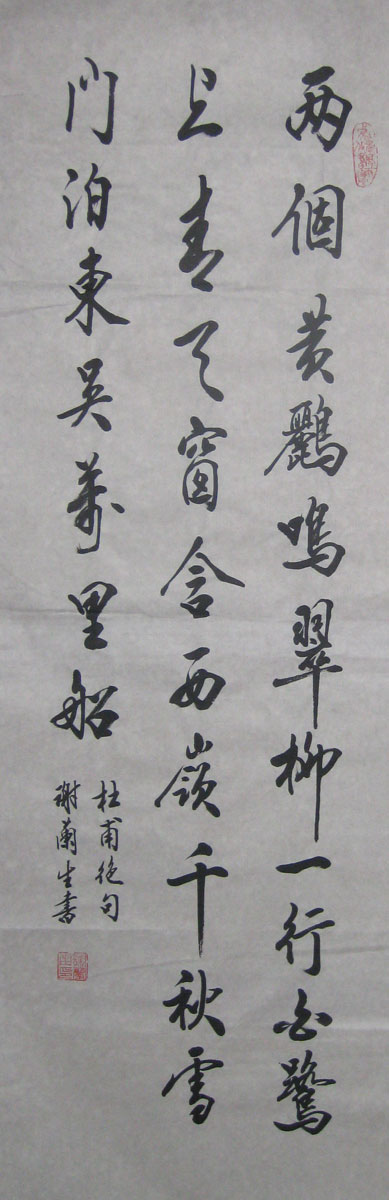 两個黄鸝鳴翠柳一行白鷺
上青天窗含西嶺千秋雪
門泊東吳萬里船
杜甫絶句
謝蘭生書